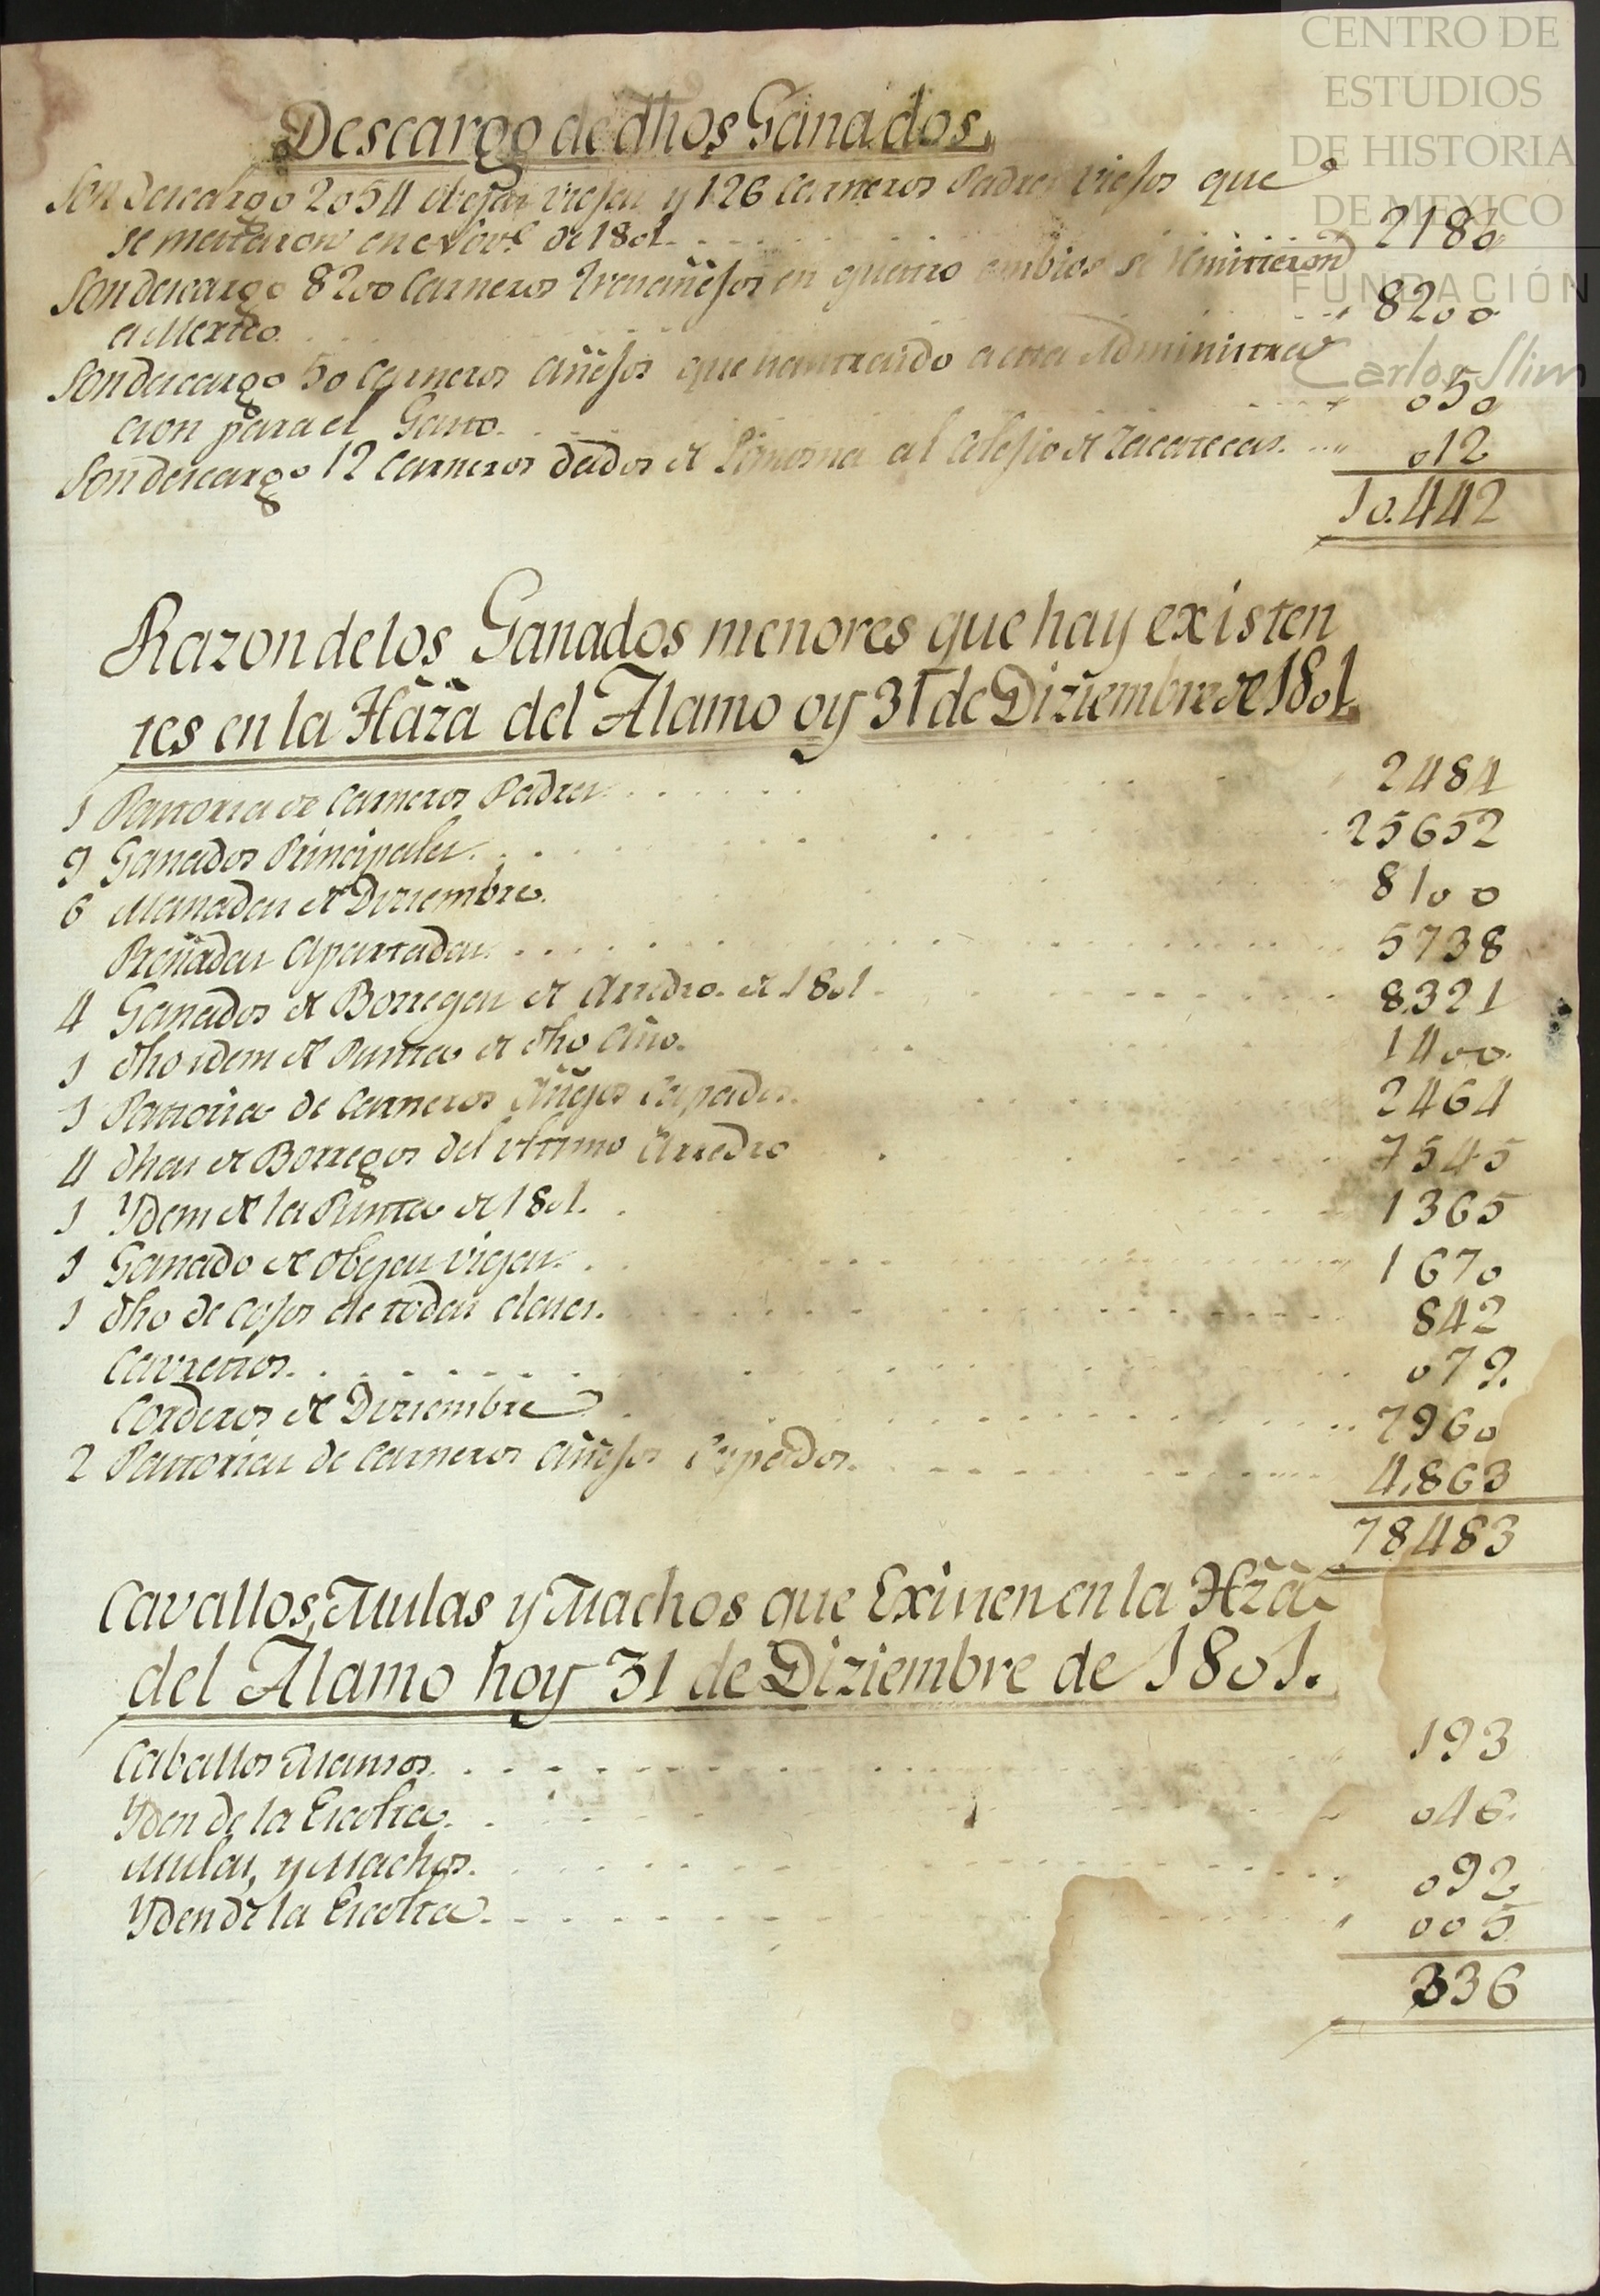 CENTRO DE
ESTUDIOS
DE HISTORIA
DE MEXICO
FUNDACIÓN
Carlos Slim
Descargo de dhos Ganados.
Son descargo 2054 obejas viejas y 126 Carneros Padres viejos que
se mataron en Nove. de 1801. 2180
Son descargo 8200 Carneros trenañejos en quatro embios se remitieron
a Mexico. 8200
Son descargo 50 Carneros añejos que han traido a esta Administra
cion para el Gasto. 050
Son descargo 12 Carneros dados de Limosna al Colejio de Zacatecas. 012
10.442
Razon de los Ganados menores que hay existen
tes en la Haza del Alamo oy 31 de Diziembre de 1801.
1 Pastoria de Carneros Padres 2484
9 Ganados Principales. 25652
6 Manadas de Diziembre. 8100
Preñadas Apartadas. 5738
4 Ganados de Borregas de Arredro. de 1801. 8.321
1 dho idem de Punta de dho Año. 1400.
1 Pastoria de Carneros Añejos Capados. 2464
4 dhas de Borregos del ultimo Arredro 7545
1 Ydem de la Punta de 1801. 1365
1 Ganado de obejas viejas. 1670
1 dho de cojos de todas clases. 842
Cavreños. 079.
Corderos de Diziembre 7960
2 Pastorias de Carneros Añejos Capados. 4,863
78483
Cavallos, Mulas y Machos que Existen en la Hza
del Alamo hoy 31 de Diziembre de 1801.
Caballos Mansos. 193
Yden de la Escolta. 046.
Mulas, y Machos. 092
Yden de la Escolta. 005
336